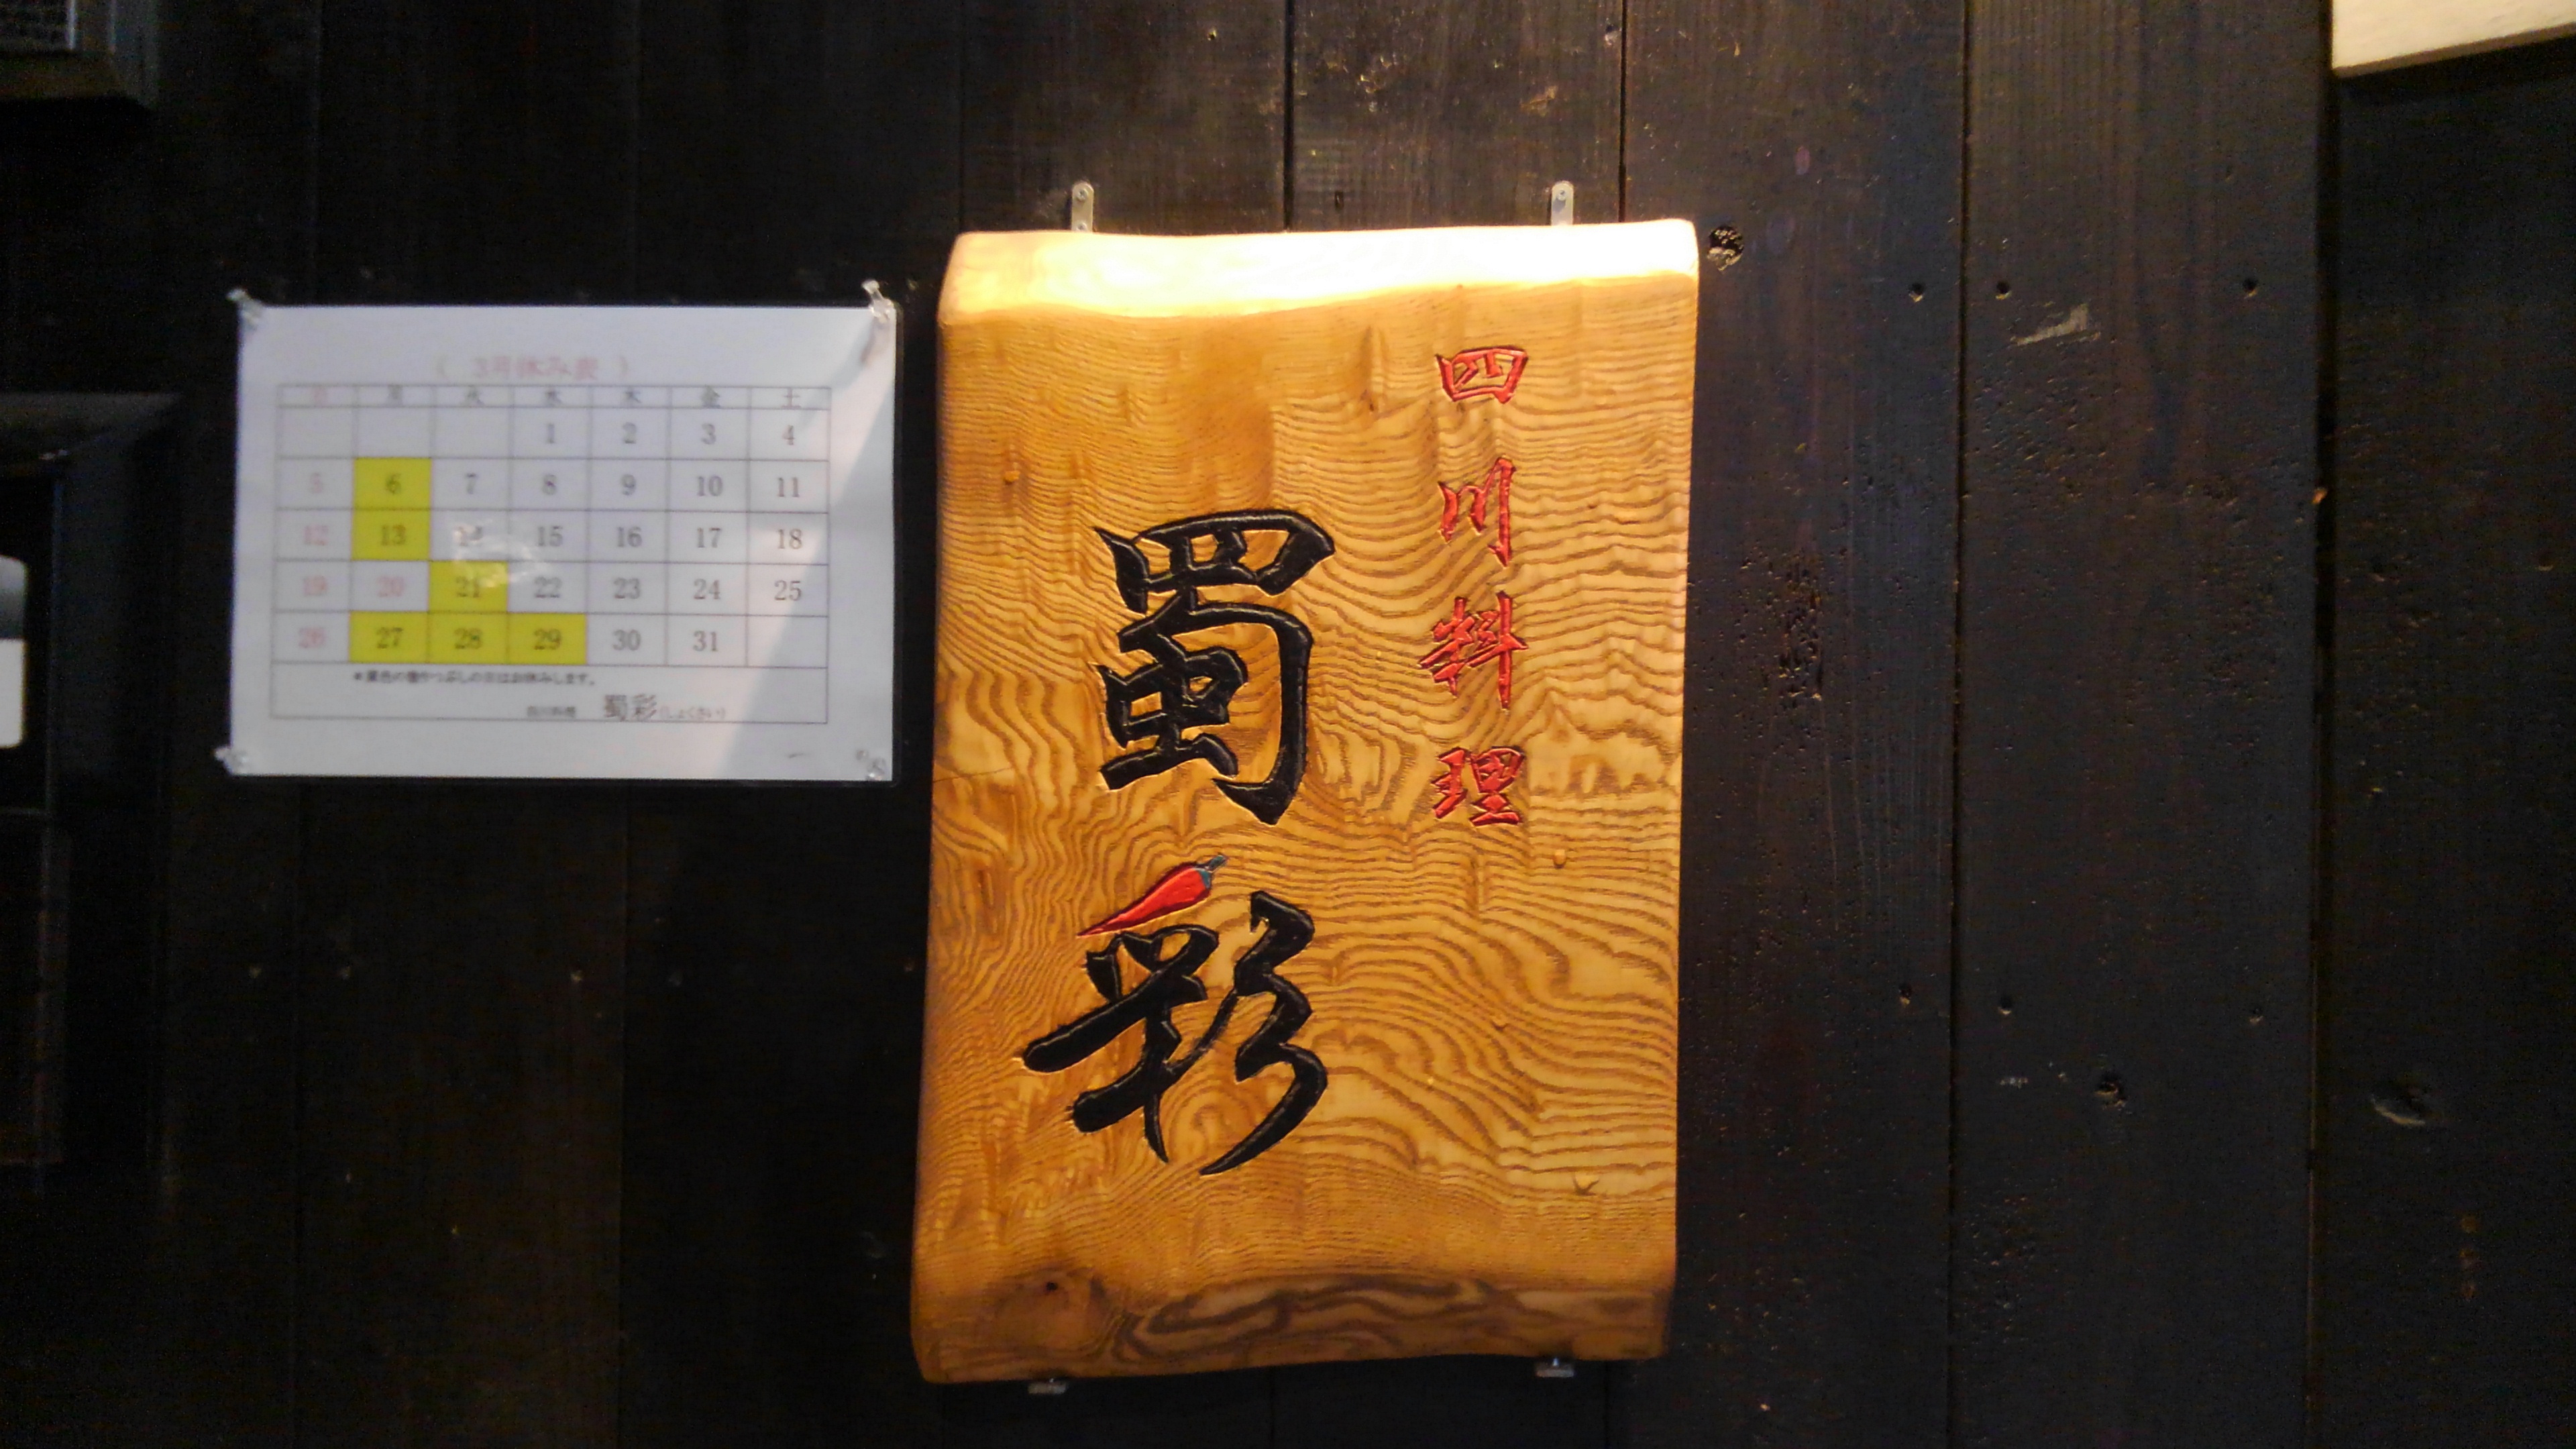 ( 3月休み表 )
日 月 火 水 木 金 土
1 2 3 4
5 6 7 8 9 10 11
12 13 14 15 16 17 18
19 20 21 22 23 24 25
26 27 28 29 30 31
*黄色の塗りつぶしの日はお休みします。
四川料理 蜀彩(しょくさい)
四川料理
蜀彩